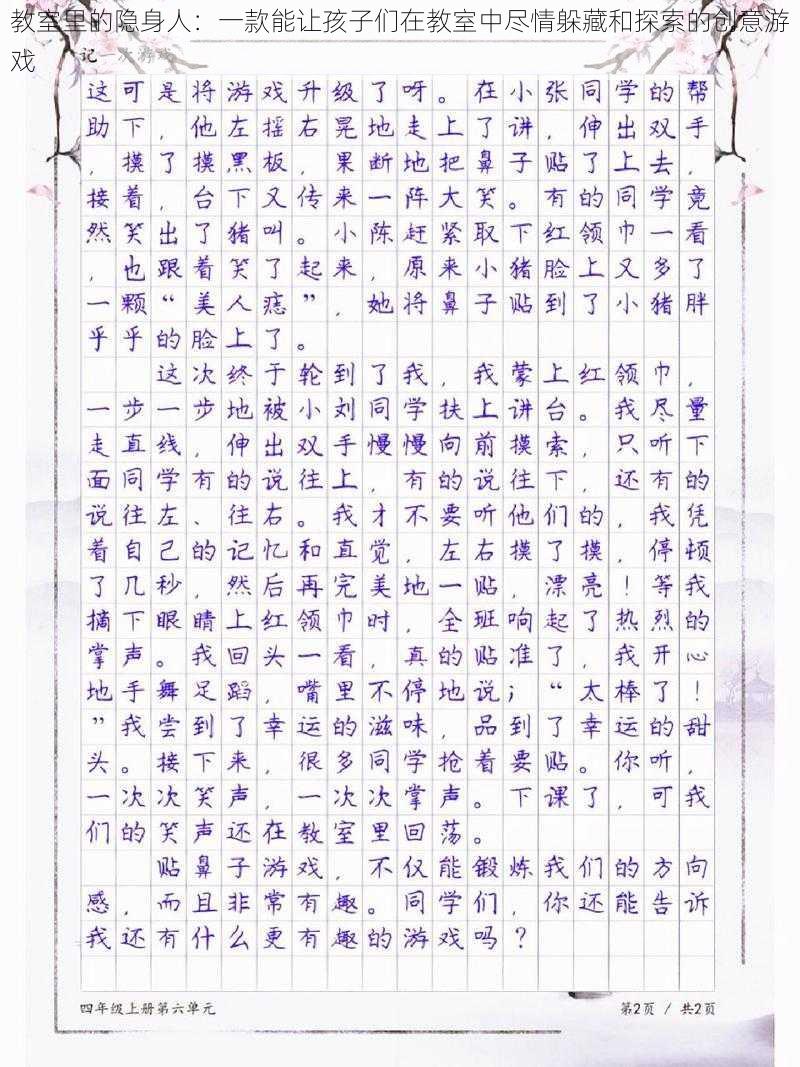 教室里的隐身人：一款能让孩子们在教室中尽情躲藏和探索的创意游
戏
记一次游戏
这可是将游戏升级了呀。在小张同学的帮
助下，他左摇右晃地走上了讲，伸出双手
，摸了摸黑板，果断地把鼻子贴了上去，
接着，台下又传来一阵大笑。有的同学竟
然笑出了猪叫。小陈赶紧取下红领巾一看
，也跟着笑了起来，原来小猪脸上又多了
一颗“美人痣”，她将鼻子贴到了小猪胖
乎乎的脸上了。
这次终于轮到了我，我蒙上红领巾，
一步一步地被小刘同学扶上讲台。我尽量
走直线，伸出双手慢慢向前摸索，只听下
面同学有的说往上，有的说往下，还有的
说往左、往右。我才不要听他们的，我凭
着自己的记忆和直觉，左右摸了摸，停顿
了几秒，然后再完美地一贴，漂亮！等我
摘下眼睛上红领巾时，全班响起了热烈的
掌声。我回头一看，真的贴准了，我开心
地手舞足蹈，嘴里不停地说；“太棒了！
”我尝到了幸运的滋味，品到了幸运的甜
头。接下来，很多同学抢着要贴。你听，
一次次笑声，一次次掌声。下课了，可我
们的笑声还在教室里回荡。
贴鼻子游戏，不仅能锻炼我们的方向
感，而且非常有趣。同学们，你还能告诉
我还有什么更有趣的游戏吗？
四年级上册第六单元
第2页 / 共2页